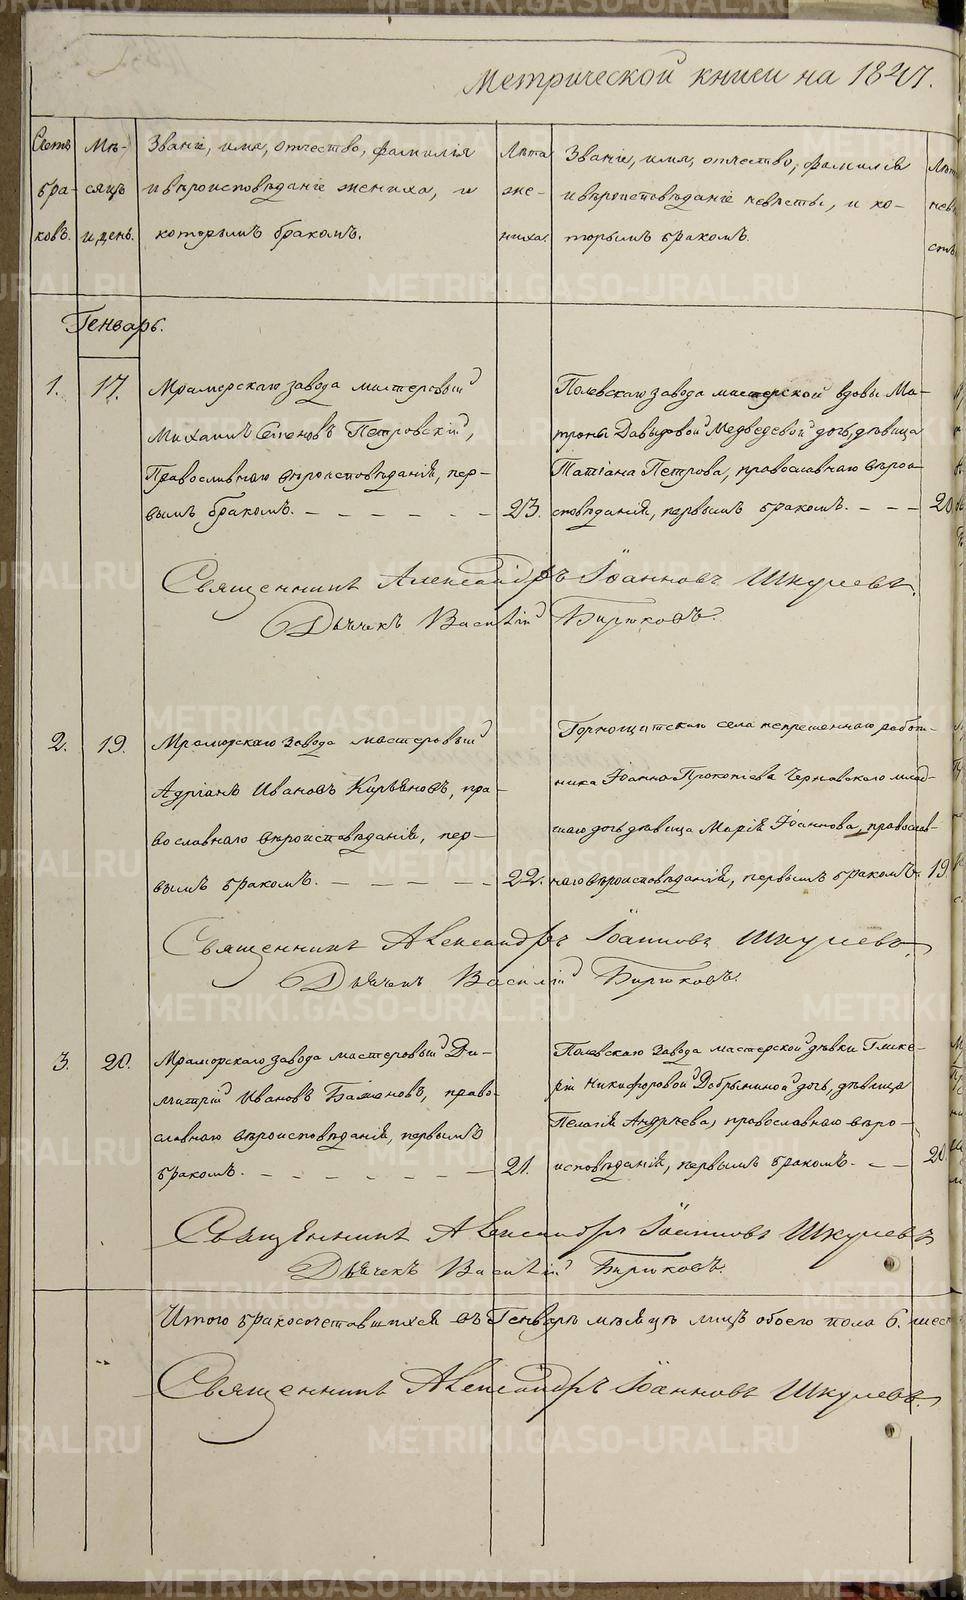 Метрической книги на 1847.
Счетъ бра- ковъ.
Мѣ- сяцъ и день.
Званіе, имя, отчество, фамилія
и вѣроисповѣданіе жениха, и
которымъ бракомъ.
Лѣта же- ниха.
Званіе, имя, отчество, фамилія
и вѣроисповѣданіе невѣсты, и ко-
торымъ бракомъ.
Генварь.
1. 17.
Мраморскаго завода мастеровый
Михаилъ Семеновъ Петровскій,
Православнаго вѣроисповѣданія, пер-
вымъ бракомъ. 23.
Полевскаго завода мастерской вдовы Ма-
троны Давыдовой Медведевой дочь, дѣвица
Татіана Петрова, православнаго вѣрои-
сповѣданія, первымъ бракомъ. 20
Священникъ Александръ Іоанновъ Шкулевъ.
Дьячекъ Василій Бирюковъ.
2. 19.
Мраморскаго завода мастеровый
Адріанъ Ивановъ Кирьяновъ, пра-
вославнаго вѣроисповѣданія, пер-
вымъ бракомъ. 22.
Горнощитскаго села непременнаго работ-
ника Іоанна Прокопіева Чернавскаго
дочь дѣвица Марія Іоаннова, православ-
наго вѣроисповѣданія, первымъ бракомъ. 19.
Священникъ Александръ Іоанновъ Шкулевъ.
Дьячекъ Василій Бирюковъ.
3. 20.
Мраморскаго завода мастеровый Ди-
митрій Ивановъ православнаго вѣроисповѣданія, первымъ
бракомъ. 21.
Полевскаго завода мастерской дѣвки Глике-
ріи Никифоровой Добрыниной дочь, дѣвица
Пелагія Андреева, православнаго вѣро-
исповѣданія, первымъ бракомъ. 20
Священникъ Александръ Іоанновъ Шкулевъ
Дьячекъ Василій Бирюковъ.
Итого бракосочетавшихся въ Генварѣ мѣсяцѣ лицъ обоего пола 6. шест
Священникъ Александръ Іоанновъ Шкулевъ.
METRIKI.GASO-URAL.RU